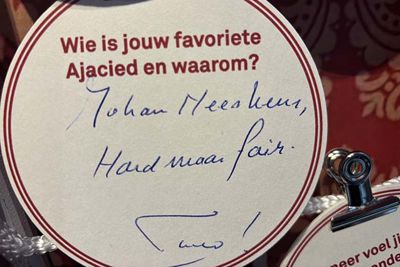 Wie is jouw favoriete
Ajacied en waarom?
Johan Neeskens,
Hard maar fair.
meer voel ji